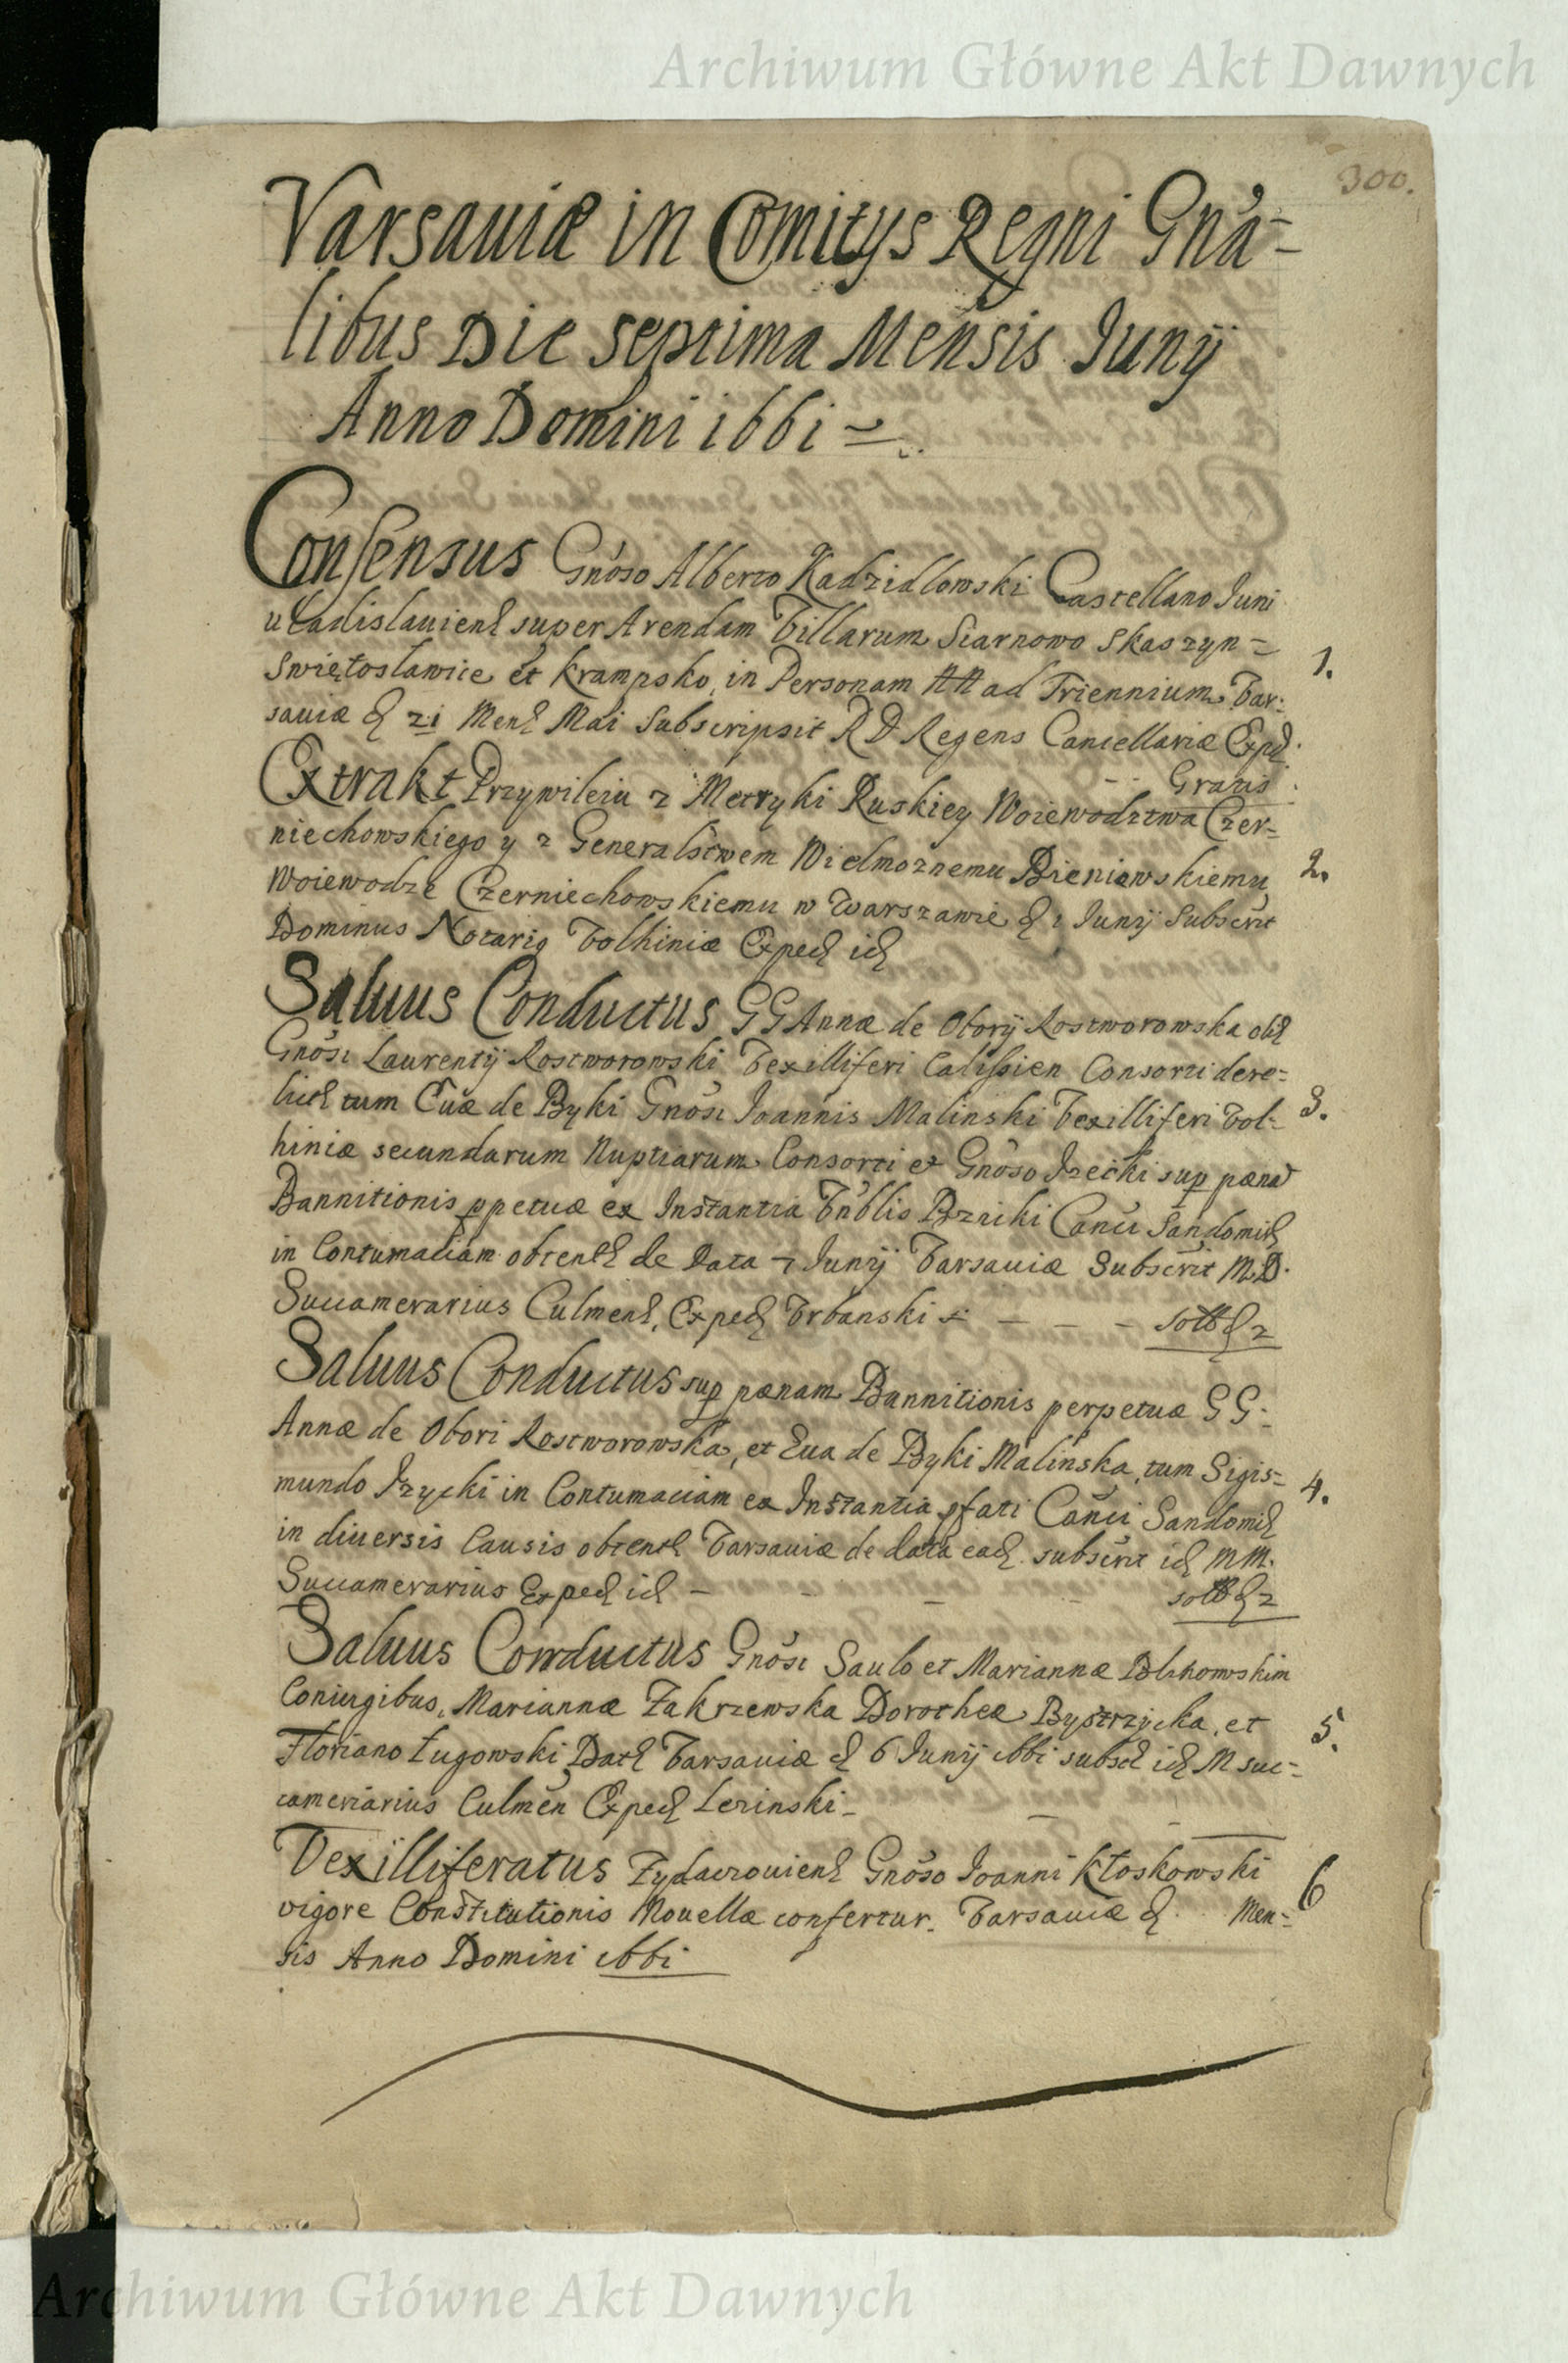 Archiwum Główne Akt Dawnych
300.
Varsauiæ in Comitys Regni Gnâ-
libus Die septima Mensis Junÿ
Anno Domini 1661
Consensus Gnoso Alberto Kadzidlowski Castellano Juni
uladislauien super Arendam Villarum Siarnowo Skaszyn =
Swiętosławice et Krampsko, in Personam NN ad Triennium Var:
sauiæ d 21 Men Mai Subscripsit R D Regens Cancellariæ Exped.
Gratis
Extrakt Przywileiu z Metryki Ruskiey Woiewodztwa Czer=
niechowskiego y z Generalstwem Wielmoznemu Bieniewskiemu 2.
Woiewodze Czerniechowskiemu w Warszawie d 1 Junÿ Subscrit
Dominus Notarig Volhiniæ Exped id
Saluus Conductus GG Annæ de Oborÿ Rostworowska olim
Gnosi Laurentÿ Rostworowski Vexilliferi Calissien Consorti dere=
lict tum Euæ de Byki Gnosi Joannis Malinski Vexilliferi Vol- 3.
hiniæ secundarum Nuptiarum Consorti et Gnoso Jzecki sup pæna
Bannitionis ppetuæ ex Instantia Vnblis Bzniki Canci Sandomi
in Contumaciam obtent de Data 7 Junÿ Varsauiæ Subscrit M.D.
Succamerarius Culmen, Exped Vrbanski
Saluus Conductus sup pænam Bannitionis perpetuæ GG:
Annæ de Obori Rostworowska, et Eua de Byki Malinska, tum Sigis=
mundo Jzycki in Contumaciam ex Instantia pfati Canci Sandomi 4.
in diuersis Causis obtent Varsauiæ de data ead subscrit id MM.
Succamerarius Exped id
Saluus Conductus Gnosi Saulo et Mariannæ
Coniugibus, Mariannæ Zakrzewska Dorotheæ Bystrzycka, et 5.
Floriano Ługowski Dat Varsauiæ d 6 Junÿ 1661 subsc id M suc-
camerarius Culmen Exped Lezinski
Vexilliferatus Zydaczouien Gnoso Joanni Kłoskowski 6
vigore Constitutionis Nouellæ confertur. Varsauiæ d. Men=
sis Anno Domini 1661
Archiwum Główne Akt Dawnych